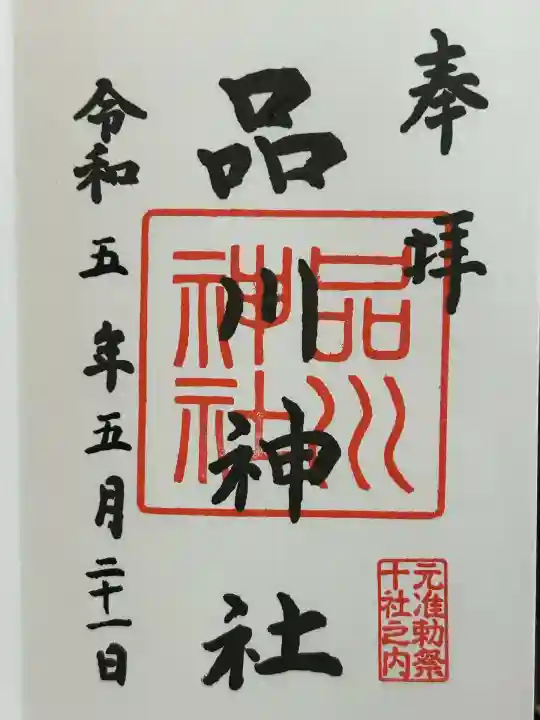 奉拝
品川神社
品川神社
元准勅祭
十社之内
令和五年五月二十一日